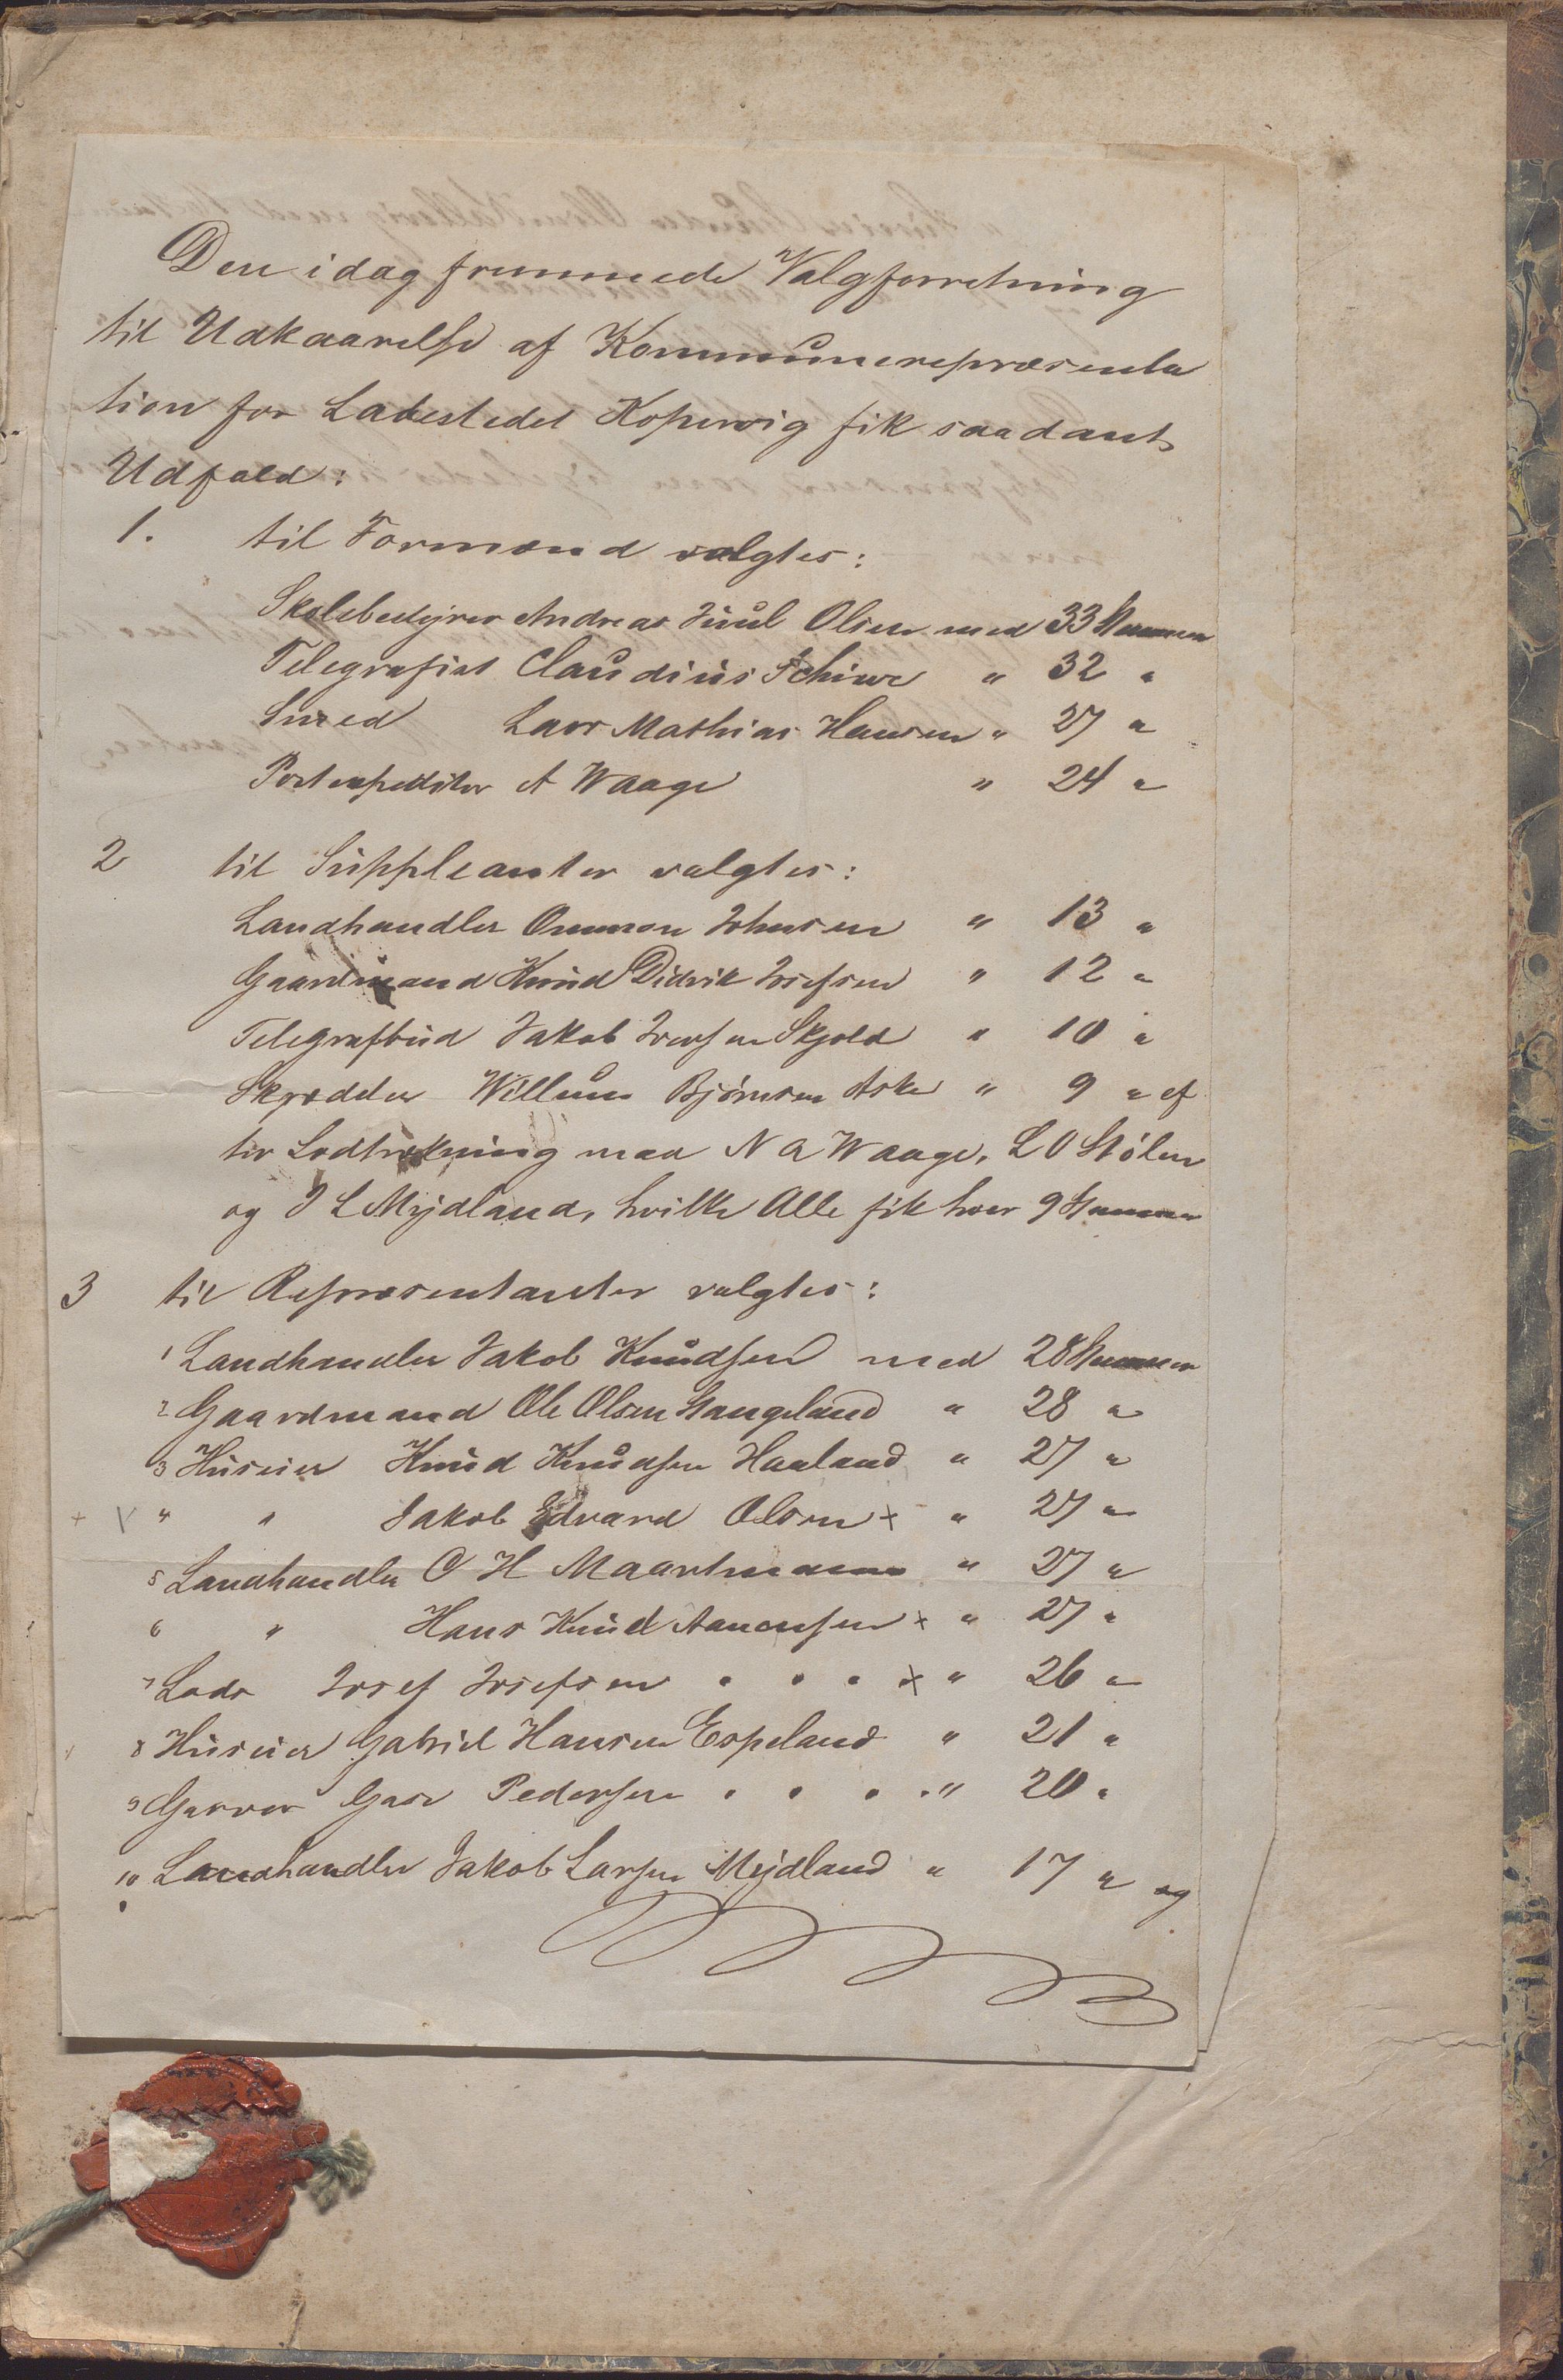 Den idag fremmede Valgforretning
til Udkaarelse af Kommunerepræsenta
tion for Ladestedet Kopervig fik saadant
Udfald:
1. til Formænd valgtes:
Skolebestyrer Andreas Juul Olsen med 33 Stemmer
Telegrafist Claudius Schiwe " 32 "
Smed Lars Mathias Hansen " 27 "
Postexpeditør A Waage " 24 "
2 til Suppleanter valgtes:
Landhandler Ommon Johnsen " 13 "
Gaardmand Knud Didrik Josefsen " 12 "
Telegrafbud Jakob Iversen Skjold " 10 "
Skrædder Willum Bjørnsen Aske " 9 " ef
ter Lodtrækning med N A Waage, L O Stølen
og J L Mydland, hvilke Alle fik hver 9 Stemmer
3 til Repræsentanter valgtes:
1 Landhandler Jakob Knudsen med 28 Stemmer
2 Gaardmand Ole Olsen Stangeland " 28 "
3 Huseier Knud Knudsen Haaland " 27 "
+ V " " Jakob Edvard Olsen x " 27 "
5 Landhandler O H Maartmann " 27 "
6 " Hans Knud Aanensen x " 27 "
7 Lods Josef Josefsen . . . x " 26 "
8 Huseier Gabriel Hansen Espeland " 21 "
9 Garver Gase Pedersen . . . . " 20 "
10 Landhandler Jakob Larsen Mydland " 17 " og